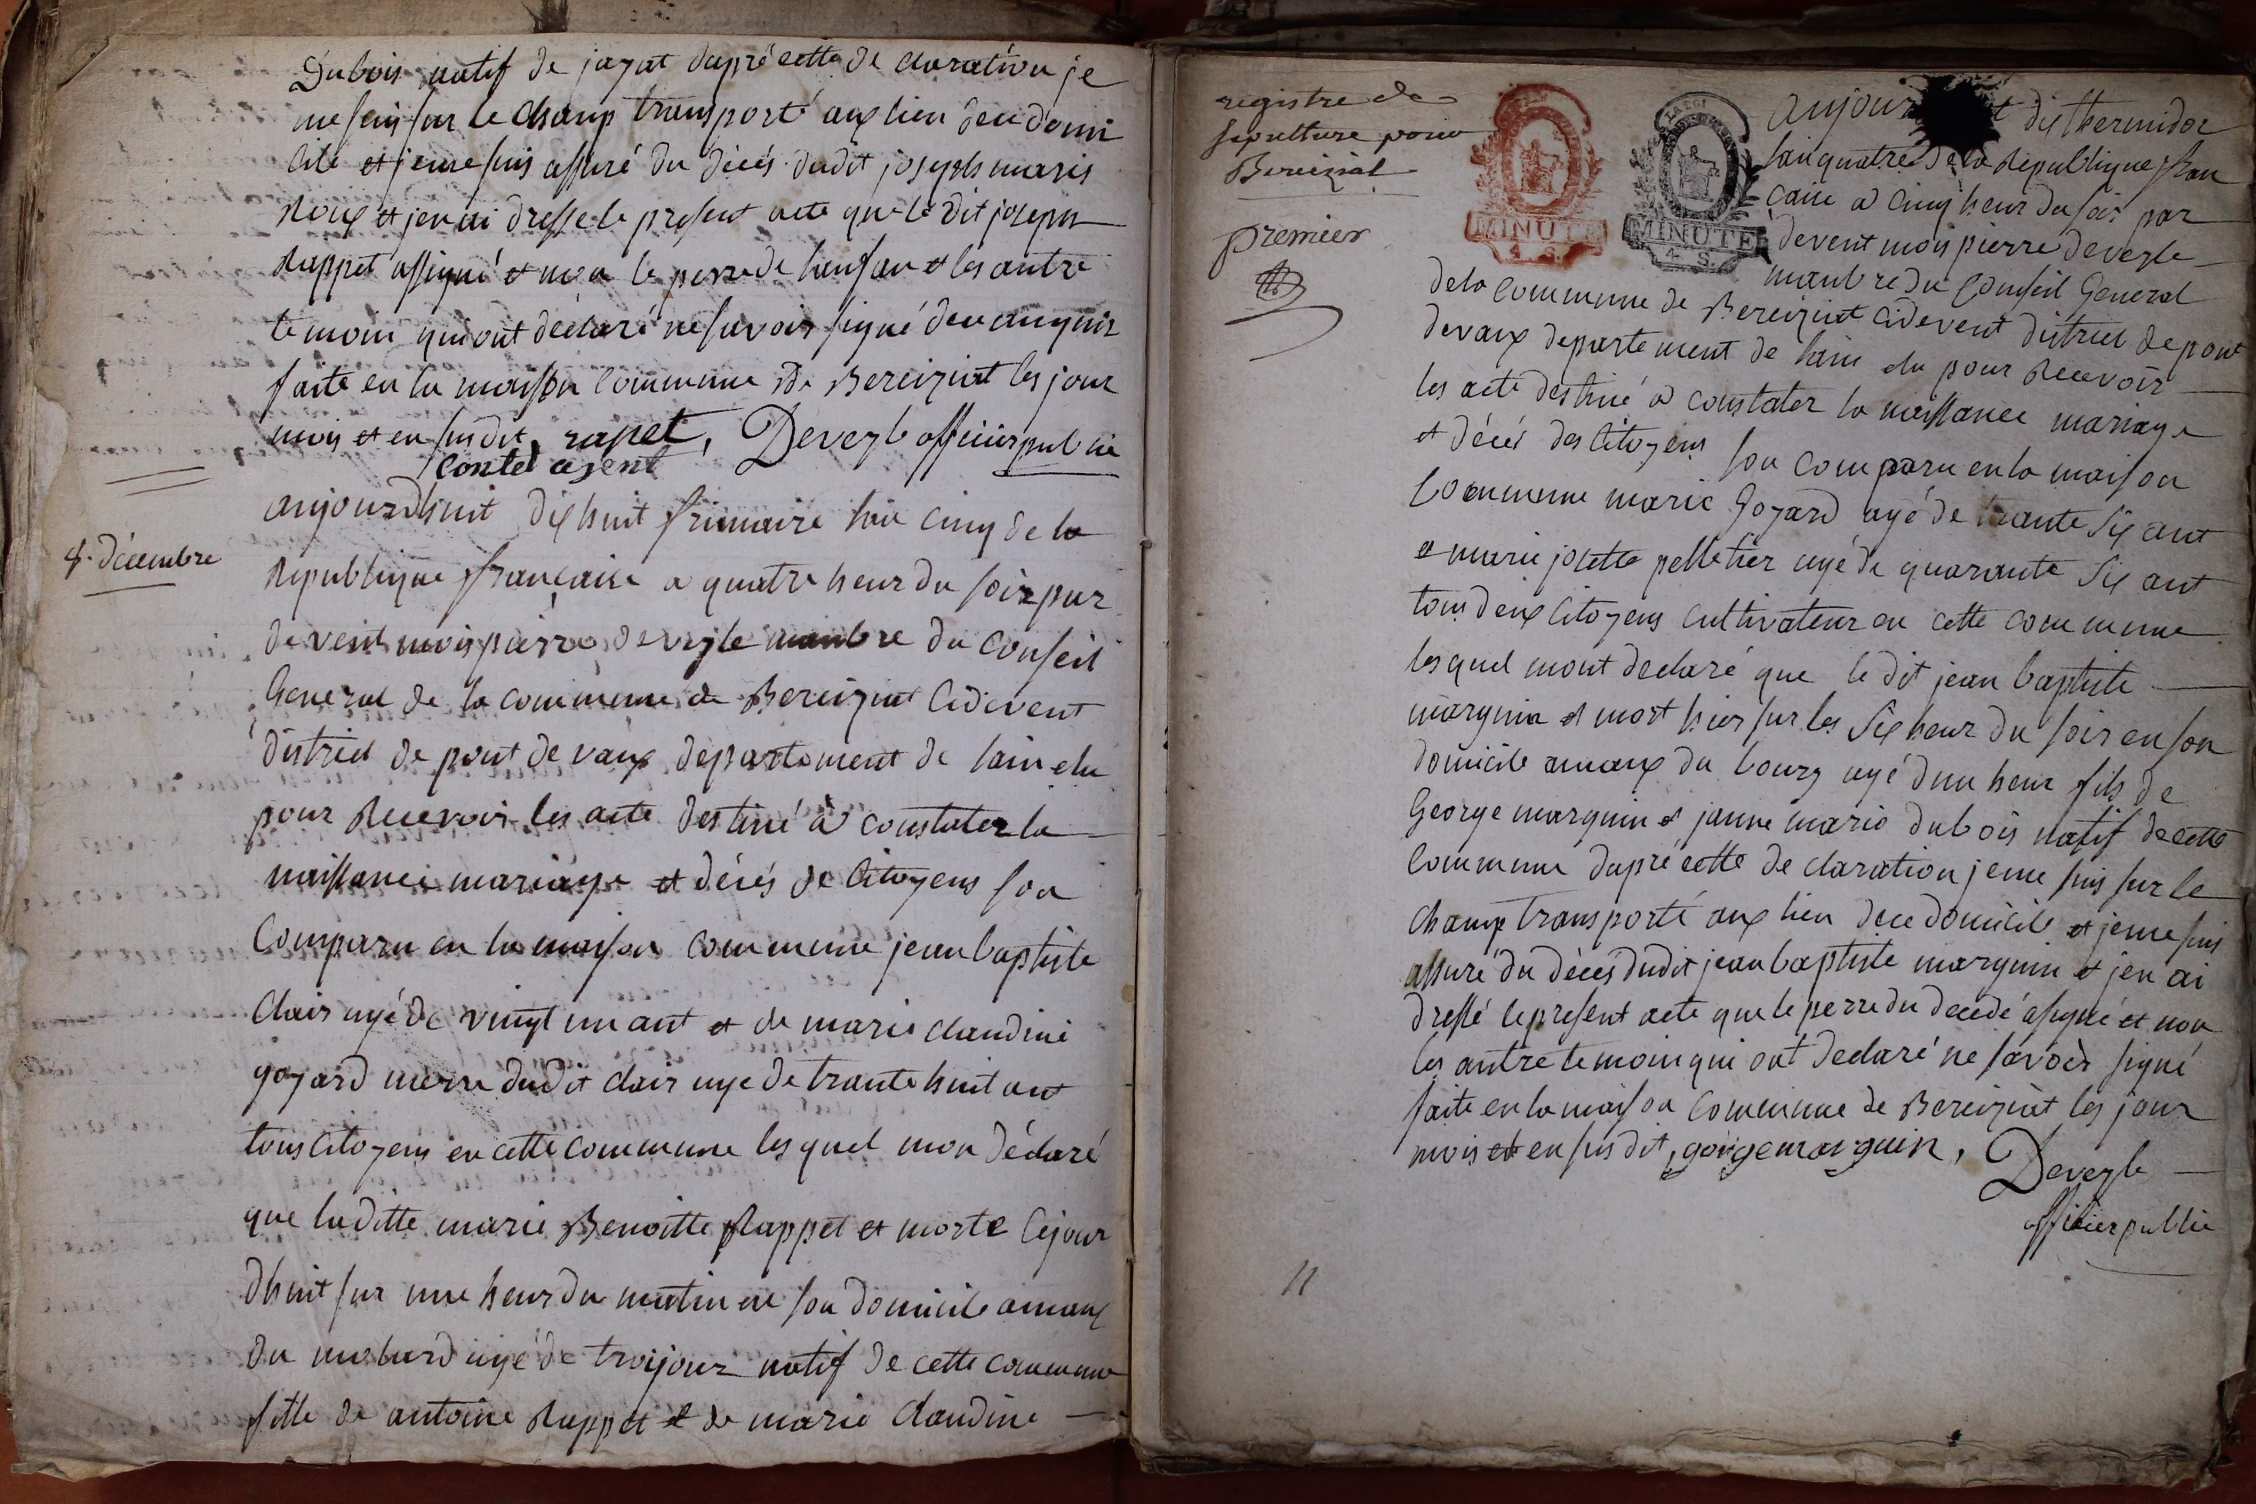 Dubois natif de jayat dapré cette de claration je
me suis sur le champ transporté aux lien dece domi
cile et jeme suis assuré du décés dudit joseph maris
Roux et jenai dresse le present acte que le dit joseph
Rappet assigné et non le perre de lenfan et les autre
temoin qui ont déclaré ne savoir signé
faite en la maison commune de Bereiziat les jour
mois et en susdit, rapet, Deveyle officier public
contet agent
8. décembre
aujourdhuit dix huit frimaire lan cinq de la
Republique française a quatre heur du soir par
de vent mois pierre deveyle manbre du conseil
General de la commune de Bereiziat Cidevent
district de pont de vaux departement de lain elu
pour Recevoir les acte destiné à constater la
naissance mariage et décés de Citoyens son
Comparu en la maison commune jean baptiste
Clair agé de vingt un ant et de marie claudine
goyard merre dudit clair age de trante huit ant
tous citoyens en cette commune lesquel mon déclaré
que laditte marie Benoitte Rappet et morte Cejour
dhuit sur une heur du matin en son domicile amaux
du molard agé de troijour natif de cette commune
fille de antoine Rappet et de marie claudine
registre de
sepulture pour
Bereiziat
premier
MINUTE
4. S.
LA LOI
MINUTE
4. S.
aujour dix thermidor
lan quatre de la Republique fran
caise a cinq heur du soir par
devent mois pierre deveyle
manbre du Conseil General
dela commune de Bereiziat cidevent district de pont
devaux departement de lain elu pour Recevoir
les acte destiné a constater la naissance mariage
et décés des Citoyens son comparu en la maison
Commune marie Goyard agé de trante six ant
et marie josette pelletier agé de quarante six ant
tous deux citoyens cultivateur en cette commune
lesquel mont declaré que le dit jean baptiste
marguin et mort hier sur les six heur du soir en son
domicile amaux du bourg agé dun heur fils de
George marguin et janne marie dubois natif de cette
commune dapré cette de claration jeme suis sur le
champ transporté aux lien dece domicile et jeme suis
assuré du décés dudit jean baptiste marguin et jen ai
dressé le present acte que le perre du decedé asigné et non
les autre temoin qui ont declaré ne savoir signé
faite en la maison commune de Bereiziat les jour
mois et en susdit, gorge marguin, Deveyle
officier public
11